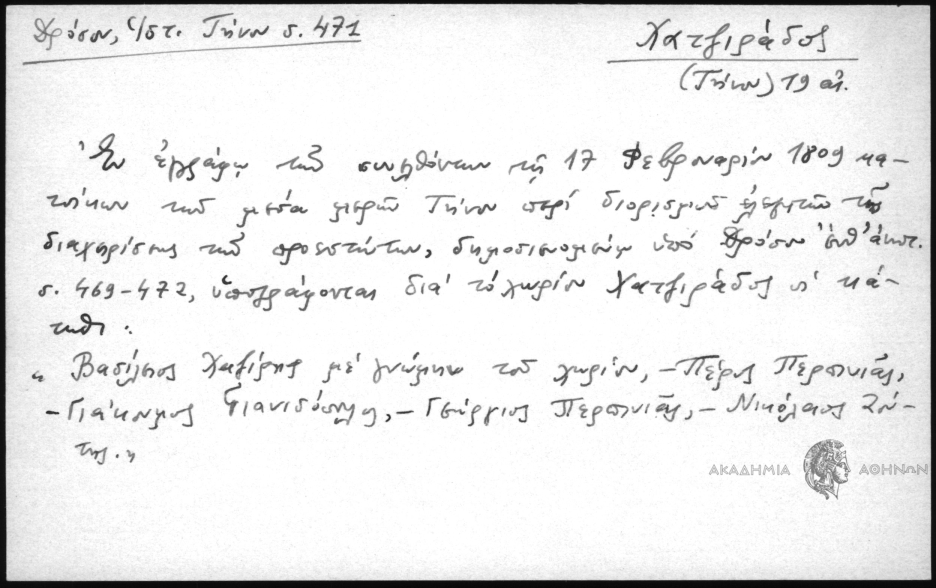 Δρόσου, Ἱστ. Τήνου σ. 471
Χατζιράδος
(Τήνου) 19 αἰ.
Ἐν ἐγγράφῳ τῶν συνελθόντων τῇ 17 Φεβρουαρίου 1809 κα-
τοίκων τῶν μερῶν Τήνου περὶ διορισμοῦ ἐλεγκτῶν τῆς
διαχειρίσεως τῶν προεστώτων, δημοσιευομένῳ ὑπὸ Δρόσου ἔνθ' ἀνωτ.
σ. 469-472, ὑπογράφονται διὰ τὸ χωρίον Χατζιράδος οἱ κά-
τωθι :
„ Βασίλειος Χαζίρης μὲ γνώμην τοῦ χωρίου, – Πέρος Περπινιᾶς,
– Γιάκουμος Γιανισόπουλος, – Γεώργιος Περπινιᾶς, – Νικόλαος Ζού-
της. „
ΑΚΑΔΗΜΙΑ ΑΘΗΝΩΝ